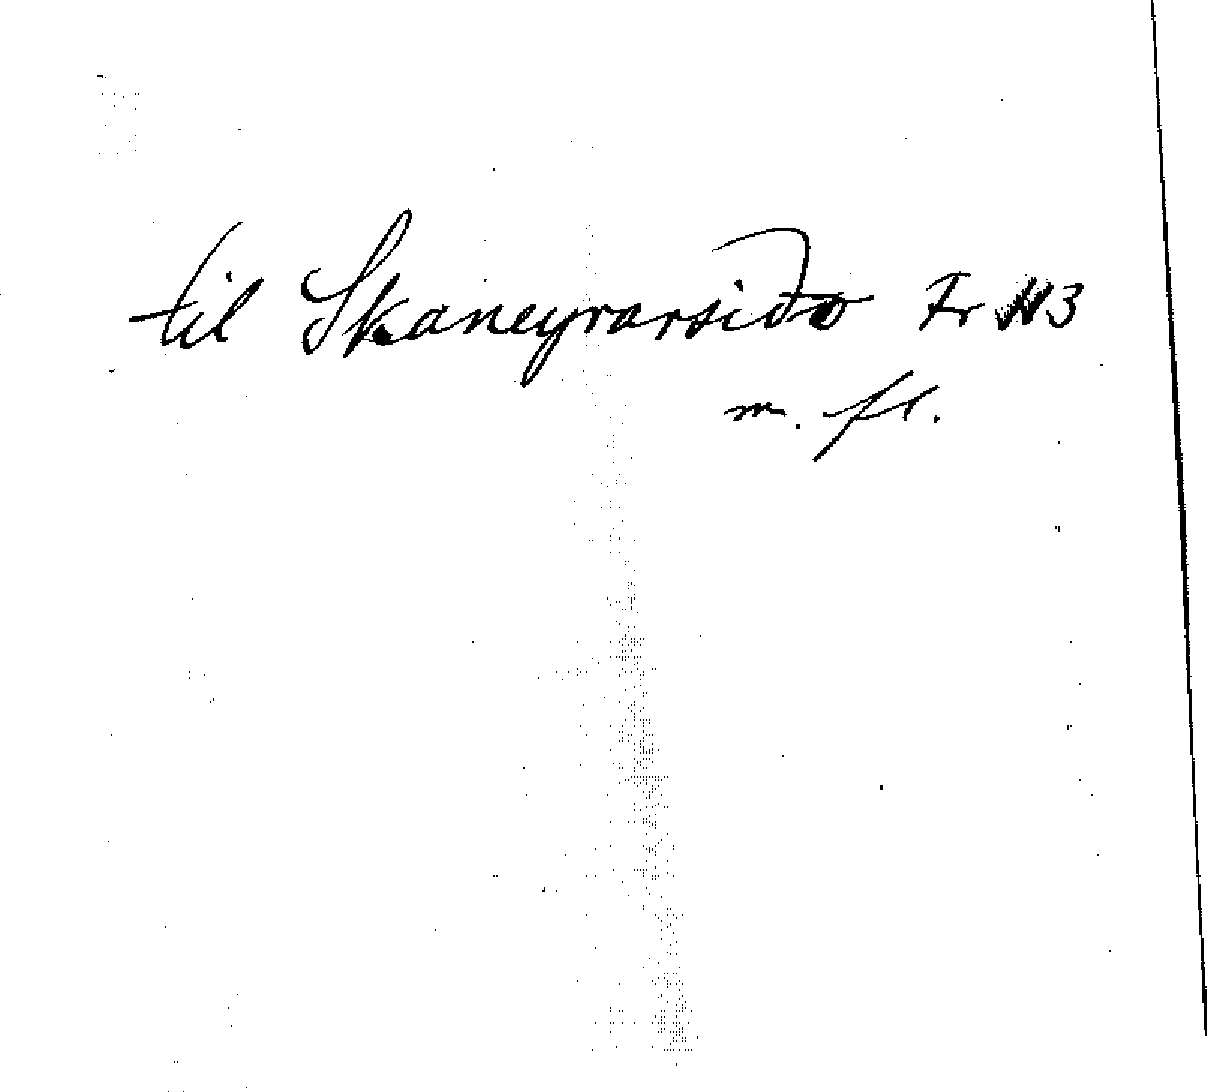 til Skaneyrarsida Fr H3
m. fl.